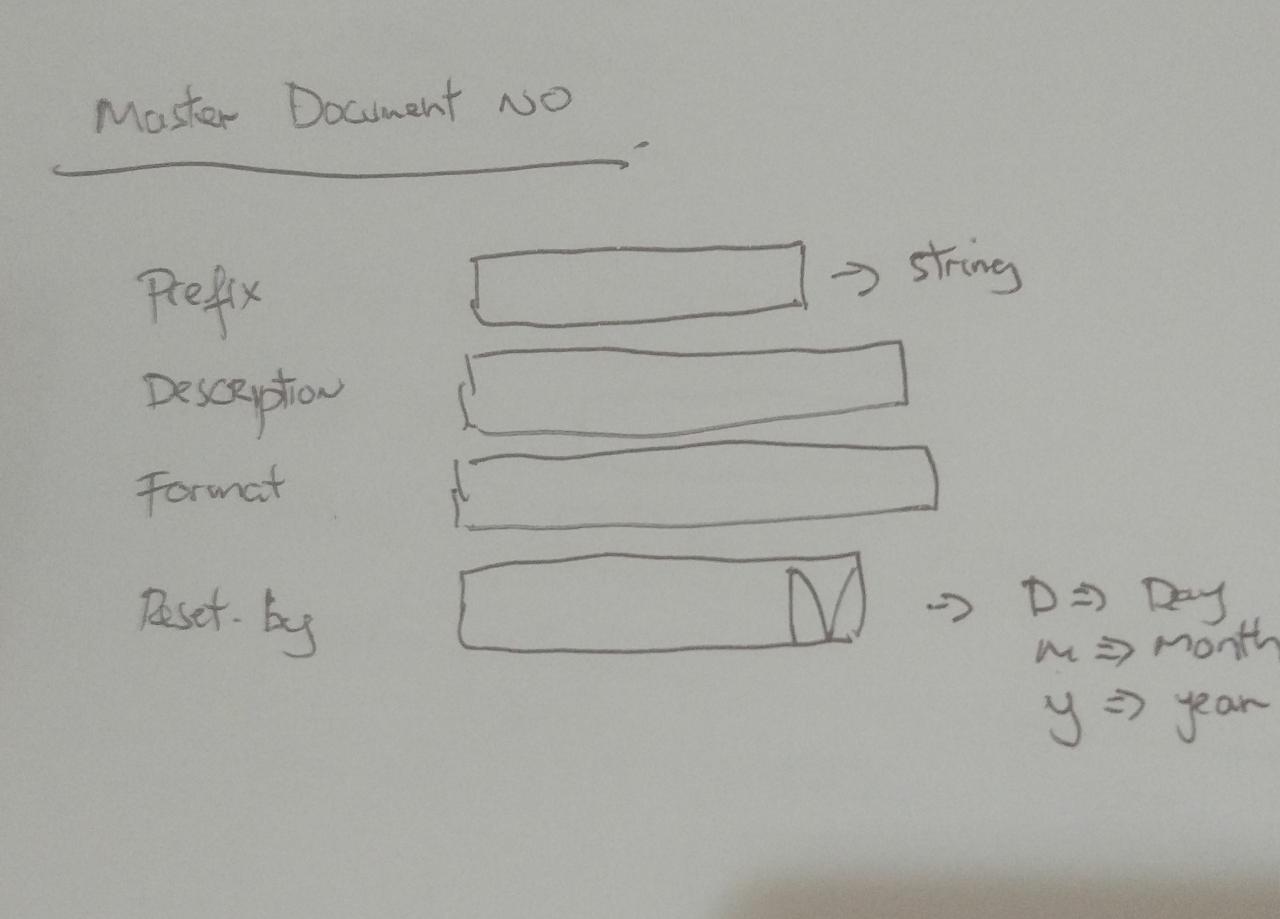 Master Document NO
Prefix → string
Description
Format
Reset-by → D ⇒ Day
m ⇒ month
y ⇒ year